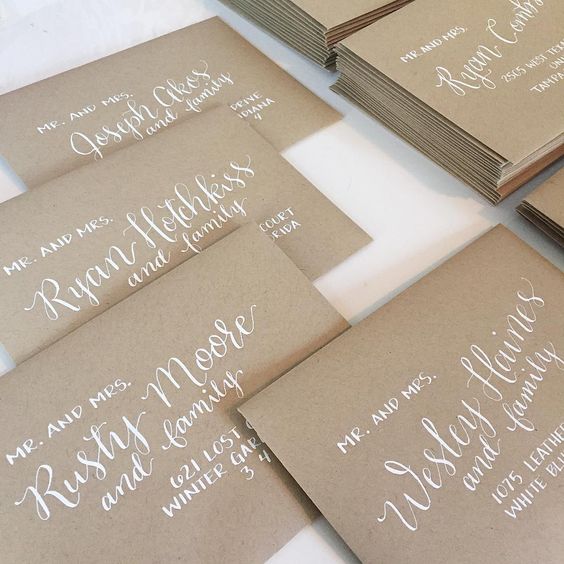 MR. AND MRS.
Joseph Akos
and family
DRIVE
4
MR. AND MRS.
Ryan Hotchkiss
and family
COURT
MR. AND MRS.
Rusty Moore
and family
621 LOST
WINTER
3 4
MR. AND MRS.
Ryan
2505 WEST
MR. AND MRS.
Wesley Haines
and family
1075
WHITE